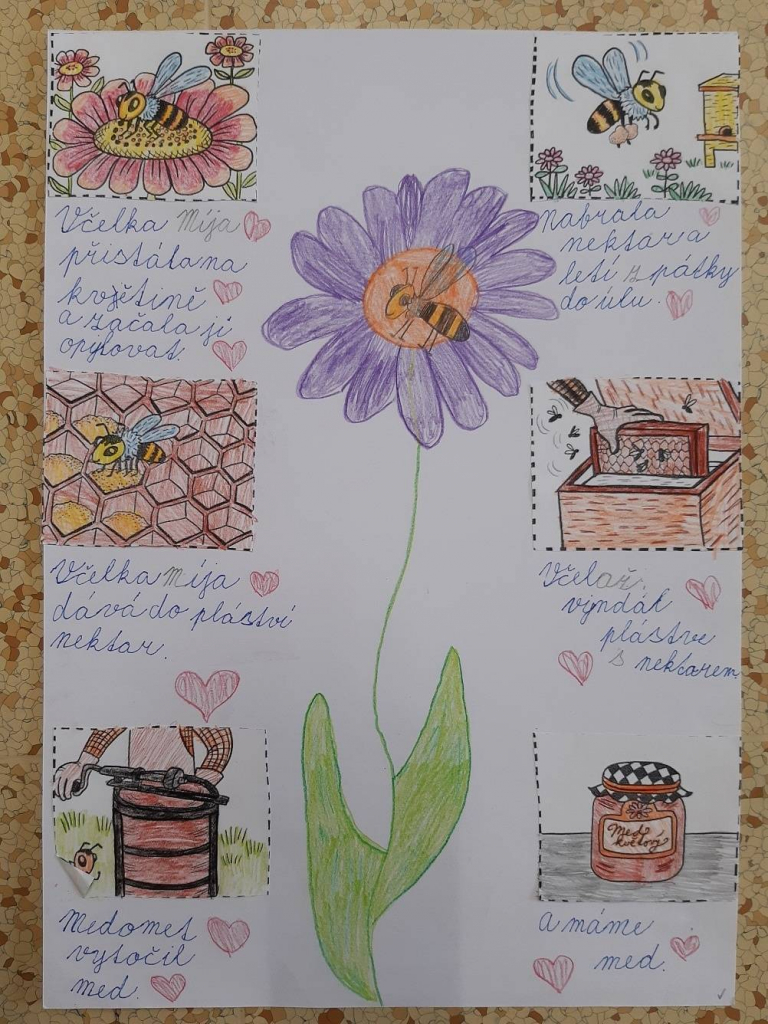 Včelka Míja
přistála na
květině
a začala ji
opylovat.
nabrala
nektar a
letí z pátky
do úlu.
Včelka Míja
dává do pláství
nektar.
Včelař
vyndál
plástve
s nektarem
Medomet
vytočil
med.
Med
květový
A máme
med.